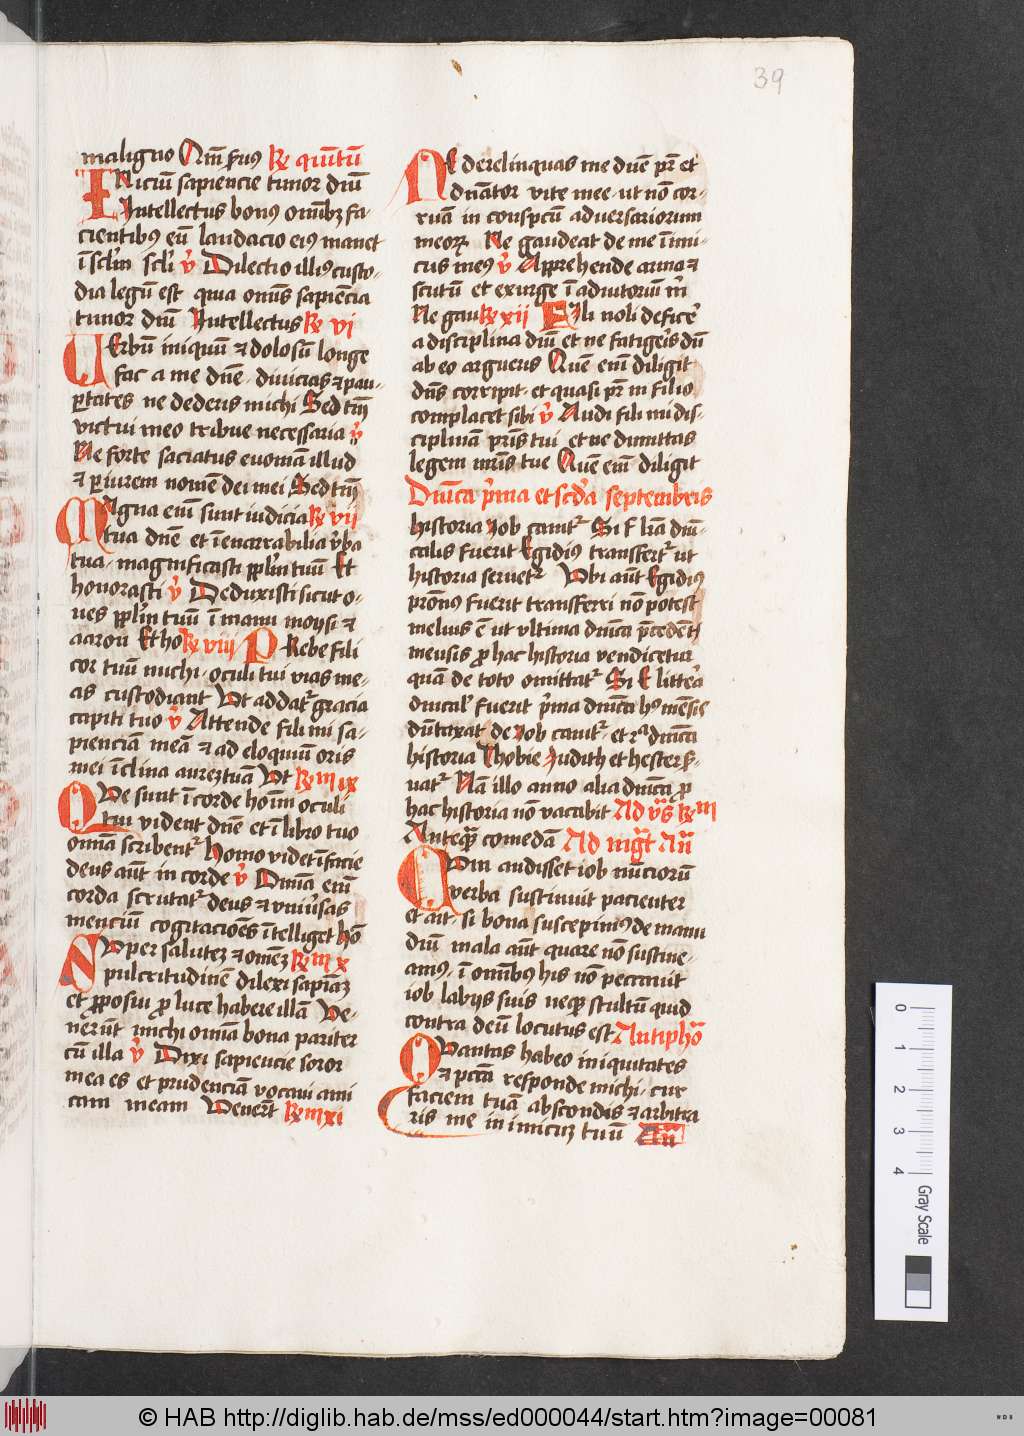 39
maligno Qm̄ prius ℞ quītū
INiciū sapiencie timor dn̄i
Intellectus bonus om̄ibꝫ fa-
cientibꝰ eū laudacio eiꝰ manet
ī sclm̄ scli ℣ Dilectio illiꝰ custo-
dia legū est quia om̄is sapiēcia
timor dn̄i Intellectus ℞ vi
UErbū iniquū ⁊ dolosū longe
fac a me dn̄e diuicias ⁊ pau-
ꝑtates ne dederis michi Sed tm̄
victui meo tribue necessaria ℣
Ne forte saciatus euomā illud
⁊ ꝑiurem nomē dei mei Sed tm̄
MAgna em̄ sunt iudicia ℞ vii
tua dn̄e et īenarrabilia v̄ba
tua magnificasti pplm̄ tuū Et
honorasti ℣ Deduxisti sicut o-
ues pplm̄ tuū ī manu moysi ⁊
aaron Et ho ℞ viii PRebe fili
cor tuū michi oculi tui vias me-
as custodiant Vt addat᷑ gracia
capiti tuo ℣ Attende fili mi sa-
pienciā meā ⁊ ad eloquiū oris
mei īclina aurez tuā Vt ℞m ix
QVe sunt ī corde hoīm oculi
tui vident dn̄e et ī libro tuo
om̄ia scribent᷑ Homo videt ī facie
deus aūt in corde ℣ Om̄ia em̄
corda scrutat᷑ deus ⁊ vniūsas
mencium cogitacōēs ītelliget Hō
SVper salutez ⁊ om̄ez ℞m x
pulcritudinē dilexi sapiāꝫ
et ꝓposui ꝓ luce habere illā Ve-
nerūt michi om̄ia bona pariter
cū illa ℣ Dixi sapiencie soror
mea es et prudenciā vocaui ami
cam meam Venerūt ℞m xi
NE derelinquas me dn̄e pr̄ et
dn̄ator vite mee ut nō cor-
ruā in conspcū aduersariorum
meoꝝ Ne gaudeat de me īimi-
cus meꝰ ℣ Apprehende arma ⁊
scutū et exurge ī adiutoriū m̄
Ne gau ℞ xii Fili noli deficē
a disciplina dn̄i et ne fatigeris dū
ab eo argueris Quē em̄ diligit
dn̄s corripit et quasi pr̄ in filio
complacet sibi ℣ Audi fili mi dis-
ciplinā pr̄is tui et ne dimittas
legem mr̄is tue Quē em̄ diligit
Dn̄ica p̄ma et scd̄a septembris
historia Job canit᷑ Si F lrā dn̄i-
calis fuerit Egidiꝰ transfert᷑ ut
historia seruet᷑ Vbi aūt Egidiꝰ
pr̄onꝰ fuerit transferri nō potest
melius ē ut vltima dn̄ica p̄cedent
mensis ꝓ hac historia vendicetur
quā de toto omittat᷑ Si E littera
dn̄ical᷑ fuerit p̄ma dn̄ica hꝰ mēsis
dūtaxat de Job canit᷑ et 2ᵃ dn̄ica
historia Thobie Judith et hester ẜ-
uat᷑ Nā illo anno alia dn̄ica ꝓ
hac historia nō vacabit Ad v̄s ℞m
Anteq̄ꝫ comedā Ad mgt̄ An̄
CVm audisset iob nūciorū
verba sustinuit pacienter
et ait si bona suscepimꝰ de manu
dn̄i mala aūt quare nō sustine-
amꝰ ī om̄ibus his nō peccauit
iob labijs suis neqꝫ stultū quid
contra deū locutus est Antipho
QVantas habeo iniquitates
⁊ pccā responde michi cur
faciem tuā abscondis ⁊ arbitra
ris me inimicuꝫ tuū An̄
0 1 2 3 4
Gray Scale
© HAB http://diglib.hab.de/mss/ed000044/start.htm?image=00081